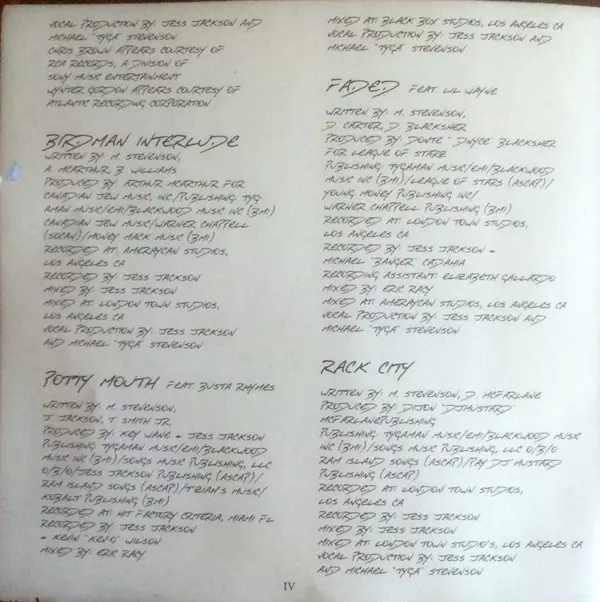 VOCAL PRODUCTION BY: JESS JACKSON AND
MICHAEL "TYGA" STEVENSON
CHRIS BROWN APPEARS COURTESY OF
RCA RECORDS, A DIVISION OF
SONY MUSIC ENTERTAINMENT
WYNTER GORDON APPEARS COURTESY OF
ATLANTIC RECORDING CORPORATION
BIRDMAN INTERLUDE
WRITTEN BY: M. STEVENSON,
A. MCARTHUR, B. WILLIAMS
PRODUCED BY: ARTHUR MCARTHUR FOR
CANADIAN JEW MUSIC, INC./PUBLISHING: TYG
AMAN MUSIC/EMI/BLACKWOOD MUSIC INC (BMI)
CANADIAN JEW MUSIC/WARNER CHAPPELL
(SOCAN)/MONEY MACK MUSIC (BMI)
RECORDED AT: AMERAYCAN STUDIOS,
LOS ANGELES CA
RECORDED BY: JESS JACKSON
MIXED BY: JESS JACKSON
MIXED AT: LONDON TOWN STUDIOS,
LOS ANGELES CA
VOCAL PRODUCTION BY: JESS JACKSON
AND MICHAEL "TYGA" STEVENSON
POTTY MOUTH FEAT. BUSTA RHYMES
WRITTEN BY: M. STEVENSON,
J. JACKSON, T. SMITH JR.
PRODUCED BY: KEY WANE + JESS JACKSON
PUBLISHING: TYGAMAN MUSIC/EMI/BLACKWOOD
MUSIC INC (BMI)/SONGS MUSIC PUBLISHING, LLC
O/B/O/JESS JACKSON PUBLISHING (ASCAP)/
RAM ISLAND SONGS (ASCAP)/T'ZIAH'S MUSIC/
KOBALT PUBLISHING (BMI)
RECORDED AT: HIT FACTORY CRITERIA, MIAMI FL
RECORDED BY: JESS JACKSON
+ KEVIN "KEV-O" WILSON
MIXED BY: ERIC RACY
MIXED AT: BLACK BOX STUDIOS, LOS ANGELES CA
VOCAL PRODUCTION BY: JESS JACKSON AND
MICHAEL "TYGA" STEVENSON
FADED FEAT. LIL WAYNE
WRITTEN BY: M. STEVENSON,
D. CARTER, D. BLACKSHER
PRODUCED BY: DONTE "DNYCE" BLACKSHER
FOR LEAGUE OF STARS
PUBLISHING: TYGAMAN MUSIC/EMI/BLACKWOOD
MUSIC INC (BMI)/LEAGUE OF STARS (ASCAP)/
YOUNG MONEY PUBLISHING INC/
WARNER CHAPPELL PUBLISHING (BMI)
RECORDED AT: LONDON TOWN STUDIOS,
LOS ANGELES CA
RECORDED BY: JESS JACKSON +
MICHAEL "BANGER" CADAHIA
RECORDING ASSISTANT: ELIZABETH GALLARDO
MIXED BY: ERIC RACY
MIXED AT: AMERAYCAN STUDIOS, LOS ANGELES CA
VOCAL PRODUCTION BY: JESS JACKSON AND
MICHAEL "TYGA" STEVENSON
RACK CITY
WRITTEN BY: M. STEVENSON, D. MCFARLANE
PRODUCED BY: DIJON "DJMUSTARD"
MCFARLANEPUBLISHING
PUBLISHING: TYGAMAN MUSIC/EMI/BLACKWOOD MUSIC
INC (BMI)/SONGS MUSIC PUBLISHING, LLC O/B/O
RAM ISLAND SONGS (ASCAP)/PAY DJ MUSTARD
PUBLISHING (ASCAP)
RECORDED AT: LONDON TOWN STUDIOS,
LOS ANGELES CA
RECORDED BY: JESS JACKSON
MIXED BY: JESS JACKSON
MIXED AT: LONDON TOWN STUDIO'S, LOS ANGELES CA
VOCAL PRODUCTION BY: JESS JACKSON
AND MICHAEL "TYGA" STEVENSON
IV